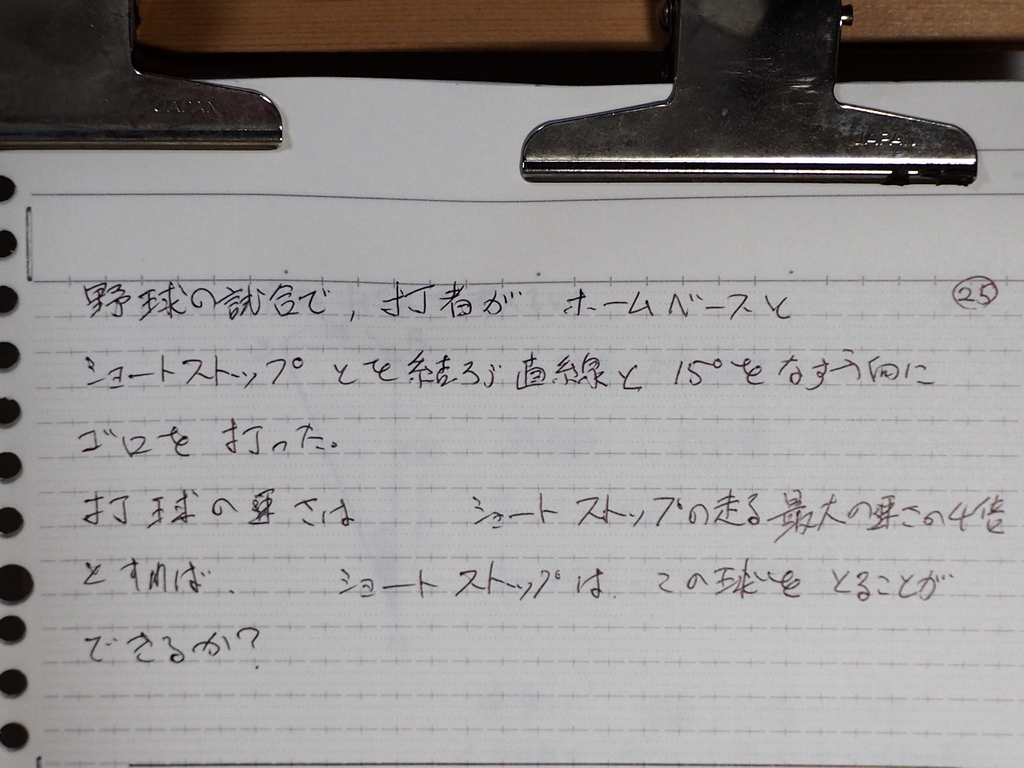 JAPAN
JAPAN
野球の試合で,打者が ホームベースと
㉕
ショートストップとを結ぶ直線と 15°をなす方向に
ゴロを打った。
打球の速さは ショートストップの走る最大の速さの4倍
とすれば. ショートストップは、この球をとることが
できるか?